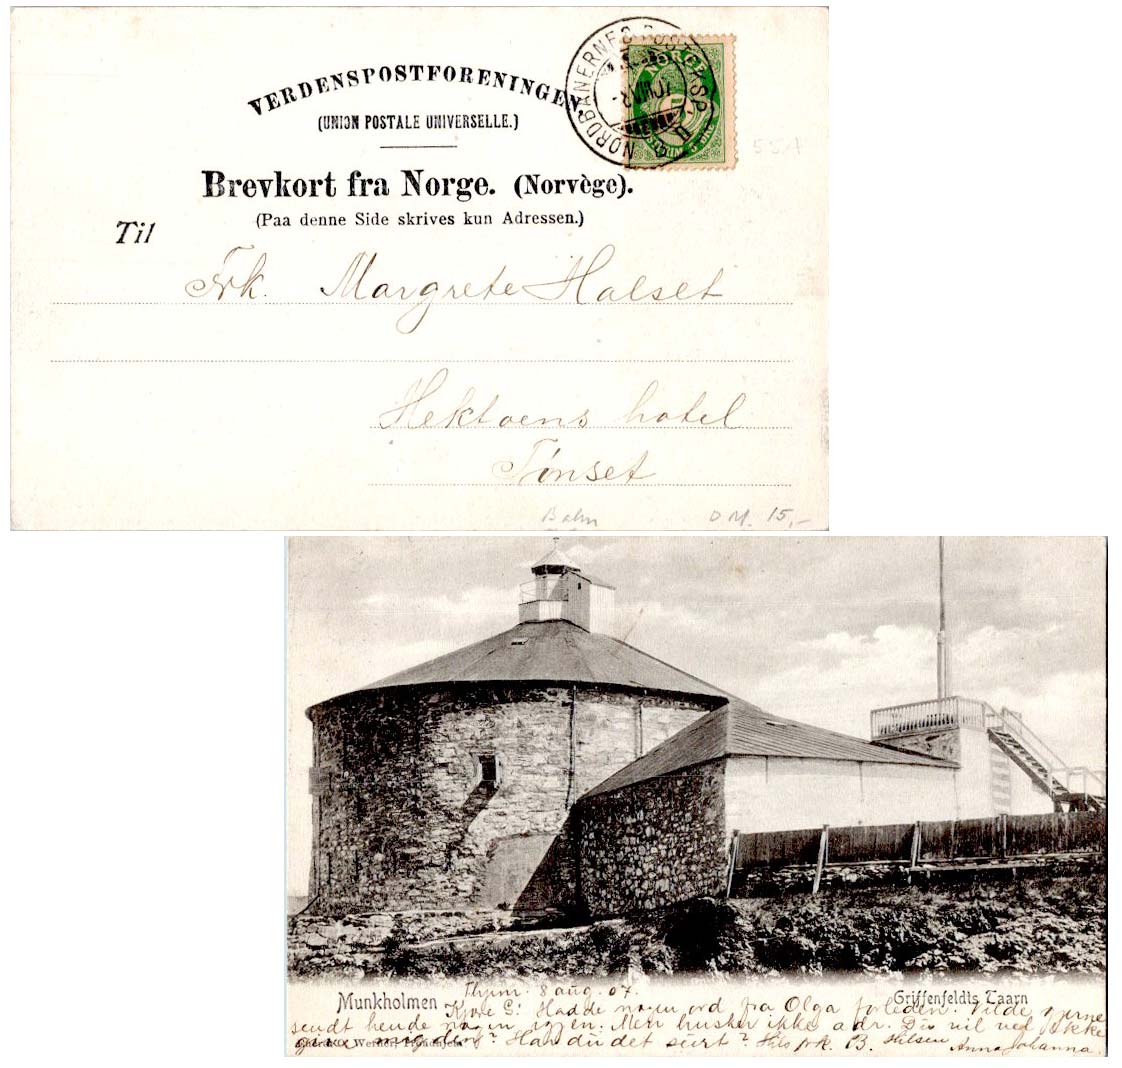 VERDENSPOSTFORENINGEN
(UNION POSTALE UNIVERSELLE.)
Brevkort fra Norge. (Norvège).
(Paa denne Side skrives kun Adressen.)
Til
NORDBANERNES POSTEXP.
NORGE
55A
Frk. Margrete Halset
Hektoens hotel
Tønset
Bahn
DM. 15,-
Munkholmen
Griffenfeldts Taarn
Thjem. 8 aug. 07.
Kjære G! Hadde nogen ord fra Olga forleden. Vilde gjerne
sendt hende nogen igjen. Men husker ikke adr. Du vil vel ikke
give mig den? Har du det svært? Hils frk. B. Hilsen
Anna Johanna.
Werner, Trondhjem